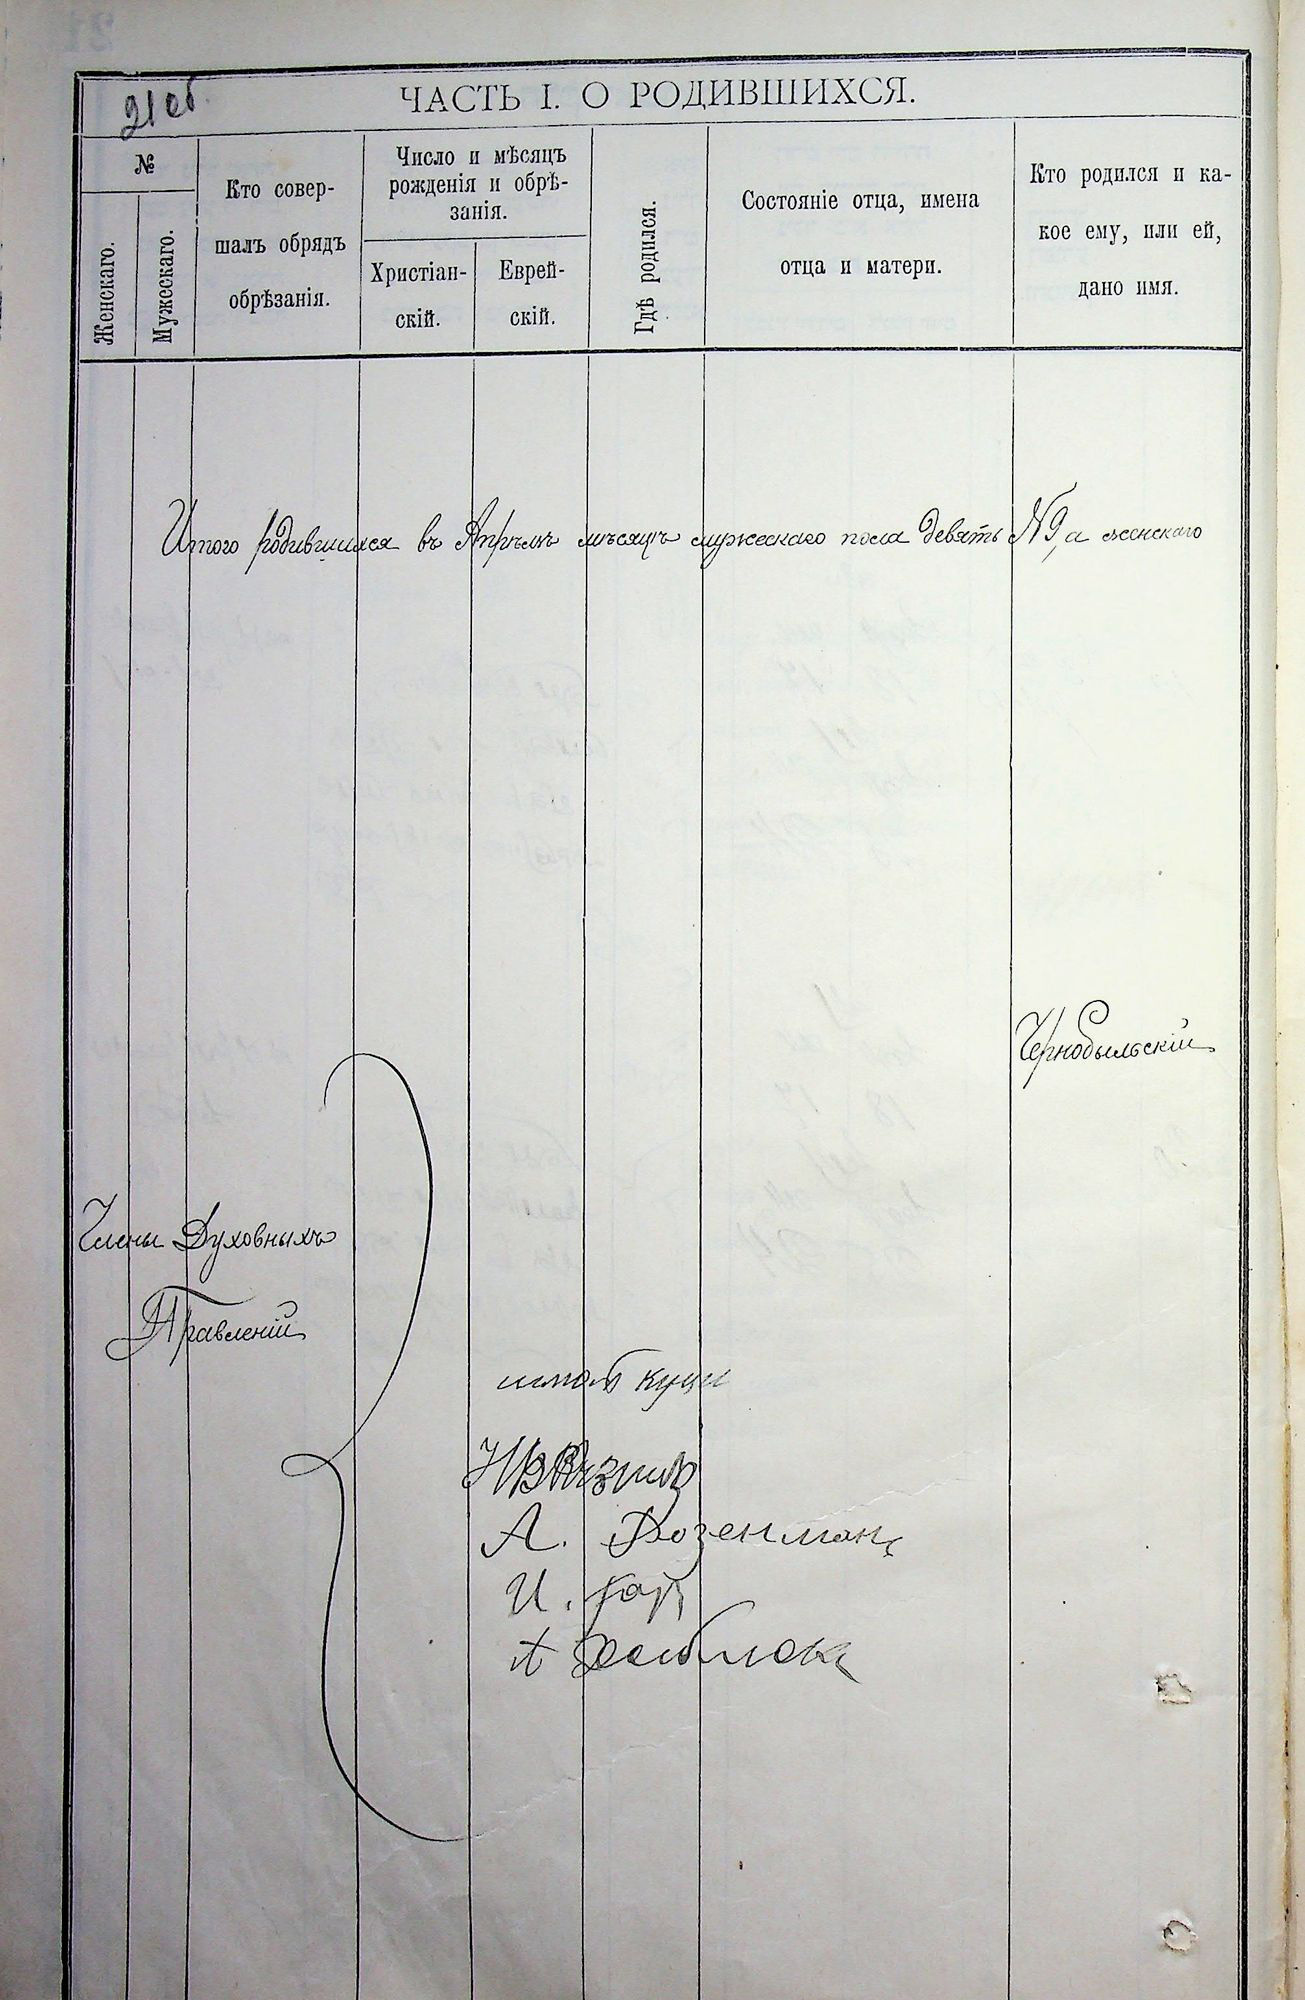 21об.
ЧАСТЬ I. О РОДИВШИХСЯ.
№
Женскаго.
Мужескаго.
Кто совер-
шалъ обрядъ
обрѣзанія.
Число и мѣсяцъ
рожденія и обрѣ-
занія.
Христіан-
скій.
Еврей-
скій.
Гдѣ родился.
Состояніе отца, имена
отца и матери.
Кто родился и ка-
кое ему, или ей,
дано имя.
Итого родившихся въ Апрѣлѣ мѣсяцѣ мужескаго пола девять №9, а женскаго
Чернобыльскій
Члены Духовныхъ
Правленій
А. Розенман
И.
А